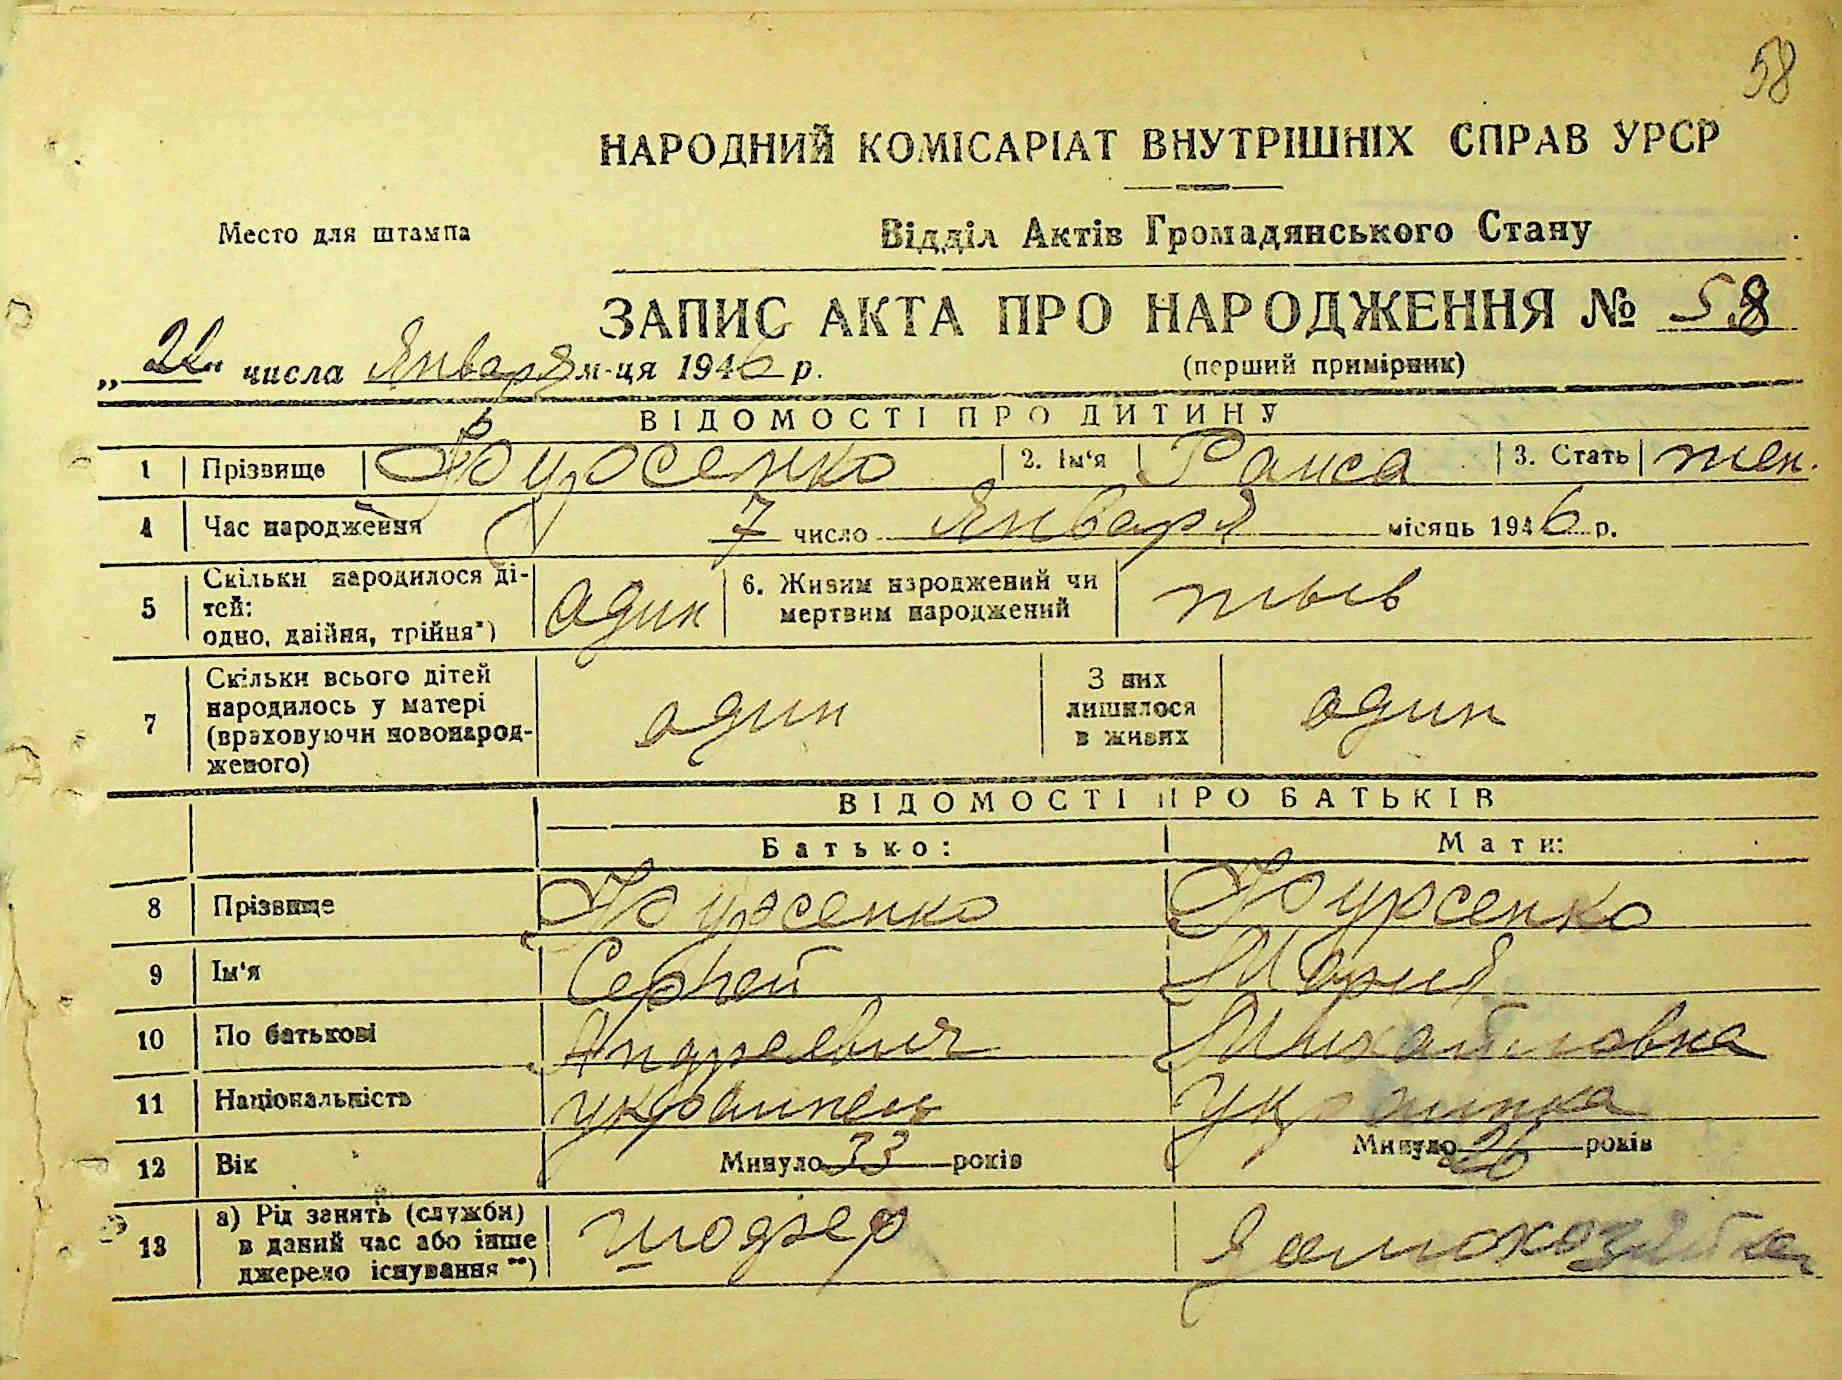 58
НАРОДНИЙ КОМІСАРІАТ ВНУТРІШНІХ СПРАВ УРСР
Место для штампа
Відділ Актів Громадянського Стану
ЗАПИС АКТА ПРО НАРОДЖЕННЯ № 58
„22" числа Января м-ця 1946 р.
(перший примірник)
ВІДОМОСТІ ПРО ДИТИНУ
1 Прізвище Фурсенко 2. Ім'я Раиса 3. Стать жен.
4 Час народження 7 число Января місяць 1946 р.
5 Скільки народилося ді-
тей:
одно, двійня, трійня*) один 6. Живим народжений чи
мертвим народжений
7 Скільки всього дітей
народилось у матері
(враховуючи новонарод-
женого) один З них
лишилося
в живих один
ВІДОМОСТІ ПРО БАТЬКІВ
Батько: Мати:
8 Прізвище Фурсенко Фурсенко
9 Ім'я Сергей Мария
10 По батькові Андреевич Михайловна
11 Національність украинец украинка
12 Вік Минуло 33 років Минуло 26 років
13 а) Рід занять (служби)
в даний час або інше
джерело існування **) шофер домохозяйка